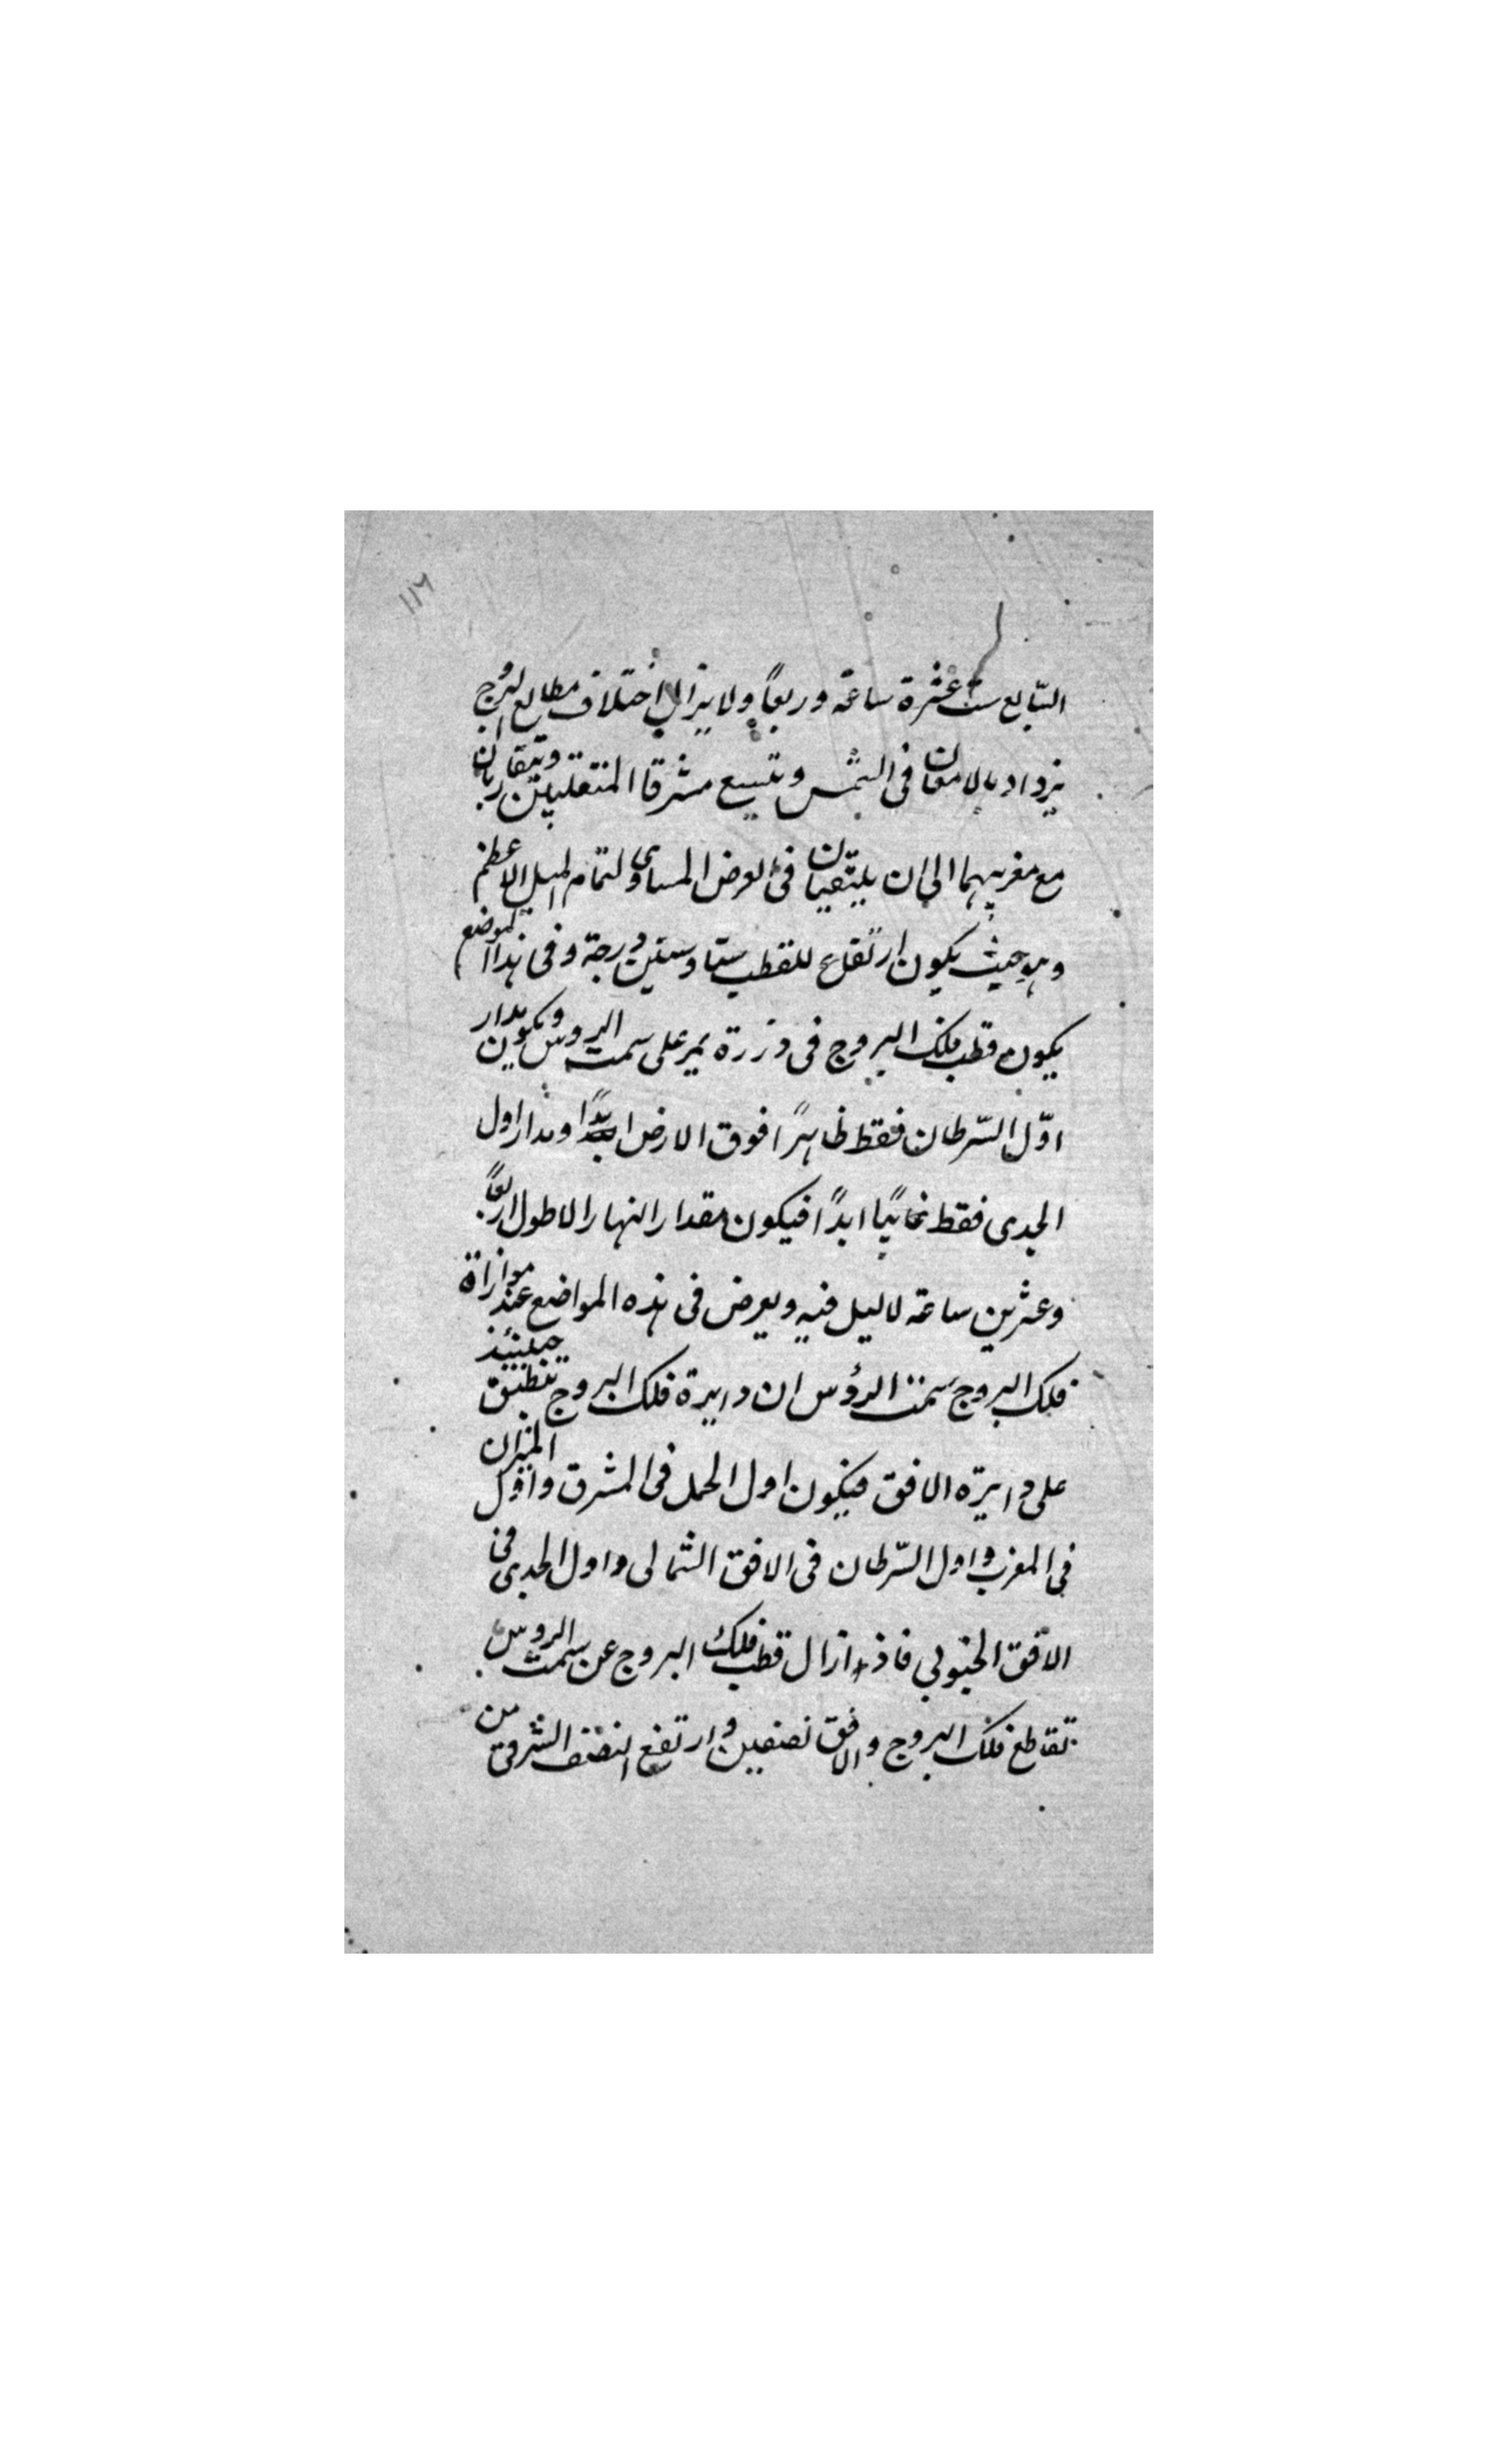 ١١٦
السّابع ست عشرة ساعة وربعاً ولا يزال اختلاف مطالع البرج
يزداد بالامعان فى الشمس ويتسع مشرقا المنقلبين ويتقاربان
مع مغربيهما الى ان يلتقيان فى العرض المساوى لتمام الميل الاعظم
وهو حيث يكون ارتفاع للقطب ستا وستين درجة وفى هذا الموضع
يكون قطب فلك البروج فى دررة يمر على سمت الروس ويكون مدار
اوّل السّرطان فقط ظاهرًا فوق الارض ابدًا ومدار اول
الجدى فقط غائبًا ابدًا فيكون مقدار النهار الاطول اربعاً
وعشرين ساعة لا ليل فيه ويعرض فى هذه المواضع عند موازاة
فلك البروج سمت الرؤس ان دايرة فلك البروج حينئذ تنطبق
على دايرة الافق فيكون اول الحمل فى المشرق واوّل الميزان
فى المغرب واول السّرطان فى الافق الشمالى واول الجدى فى
الافق الجنوبي فاذا زال قطب فلك البروج عن سمت الروس
تقاطع فلك البروج والافق نصفين وارتفع النصف الشرقى من